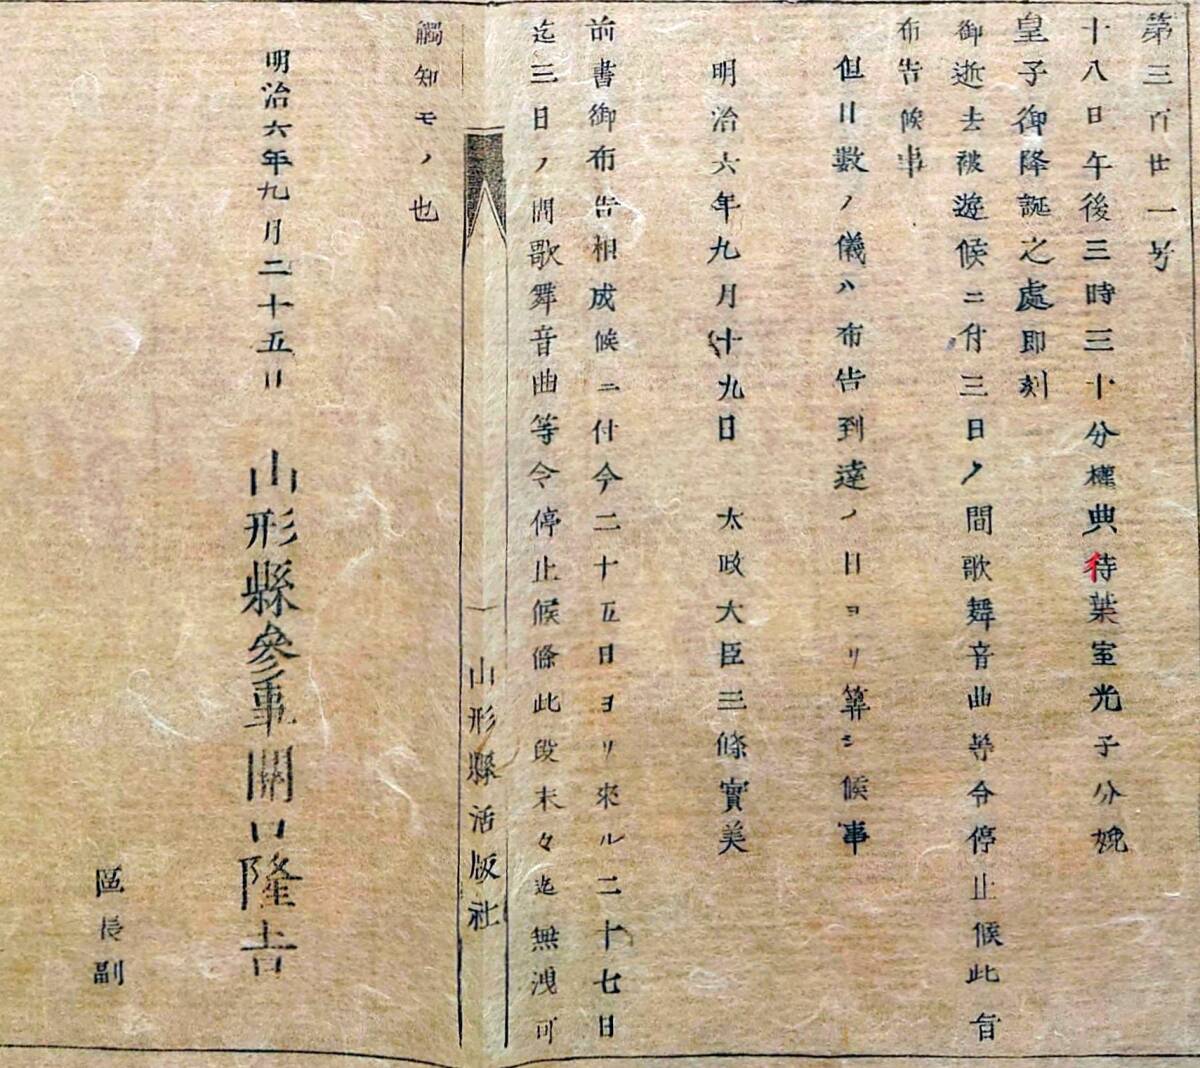 第三百卅一号
十八日午後三時三十分權典侍葉室光子分娩
皇子御降誕之處即刻
御逝去被遊候ニ付三日ノ間歌舞音曲等令停止候此旨
布告候事
但日數ノ儀ハ布告到達ノ日ヨリ算シ候事
明治六年九月十九日 太政大臣三條實美
前書御布告相成候ニ付今二十五日ヨリ來ル二十七日
迄三日ノ間歌舞音曲等令停止候條此段末々迄無洩可
山形縣活版社
觸知モノ也
明治六年九月二十五日 山形縣參事關口隆吉
區長副